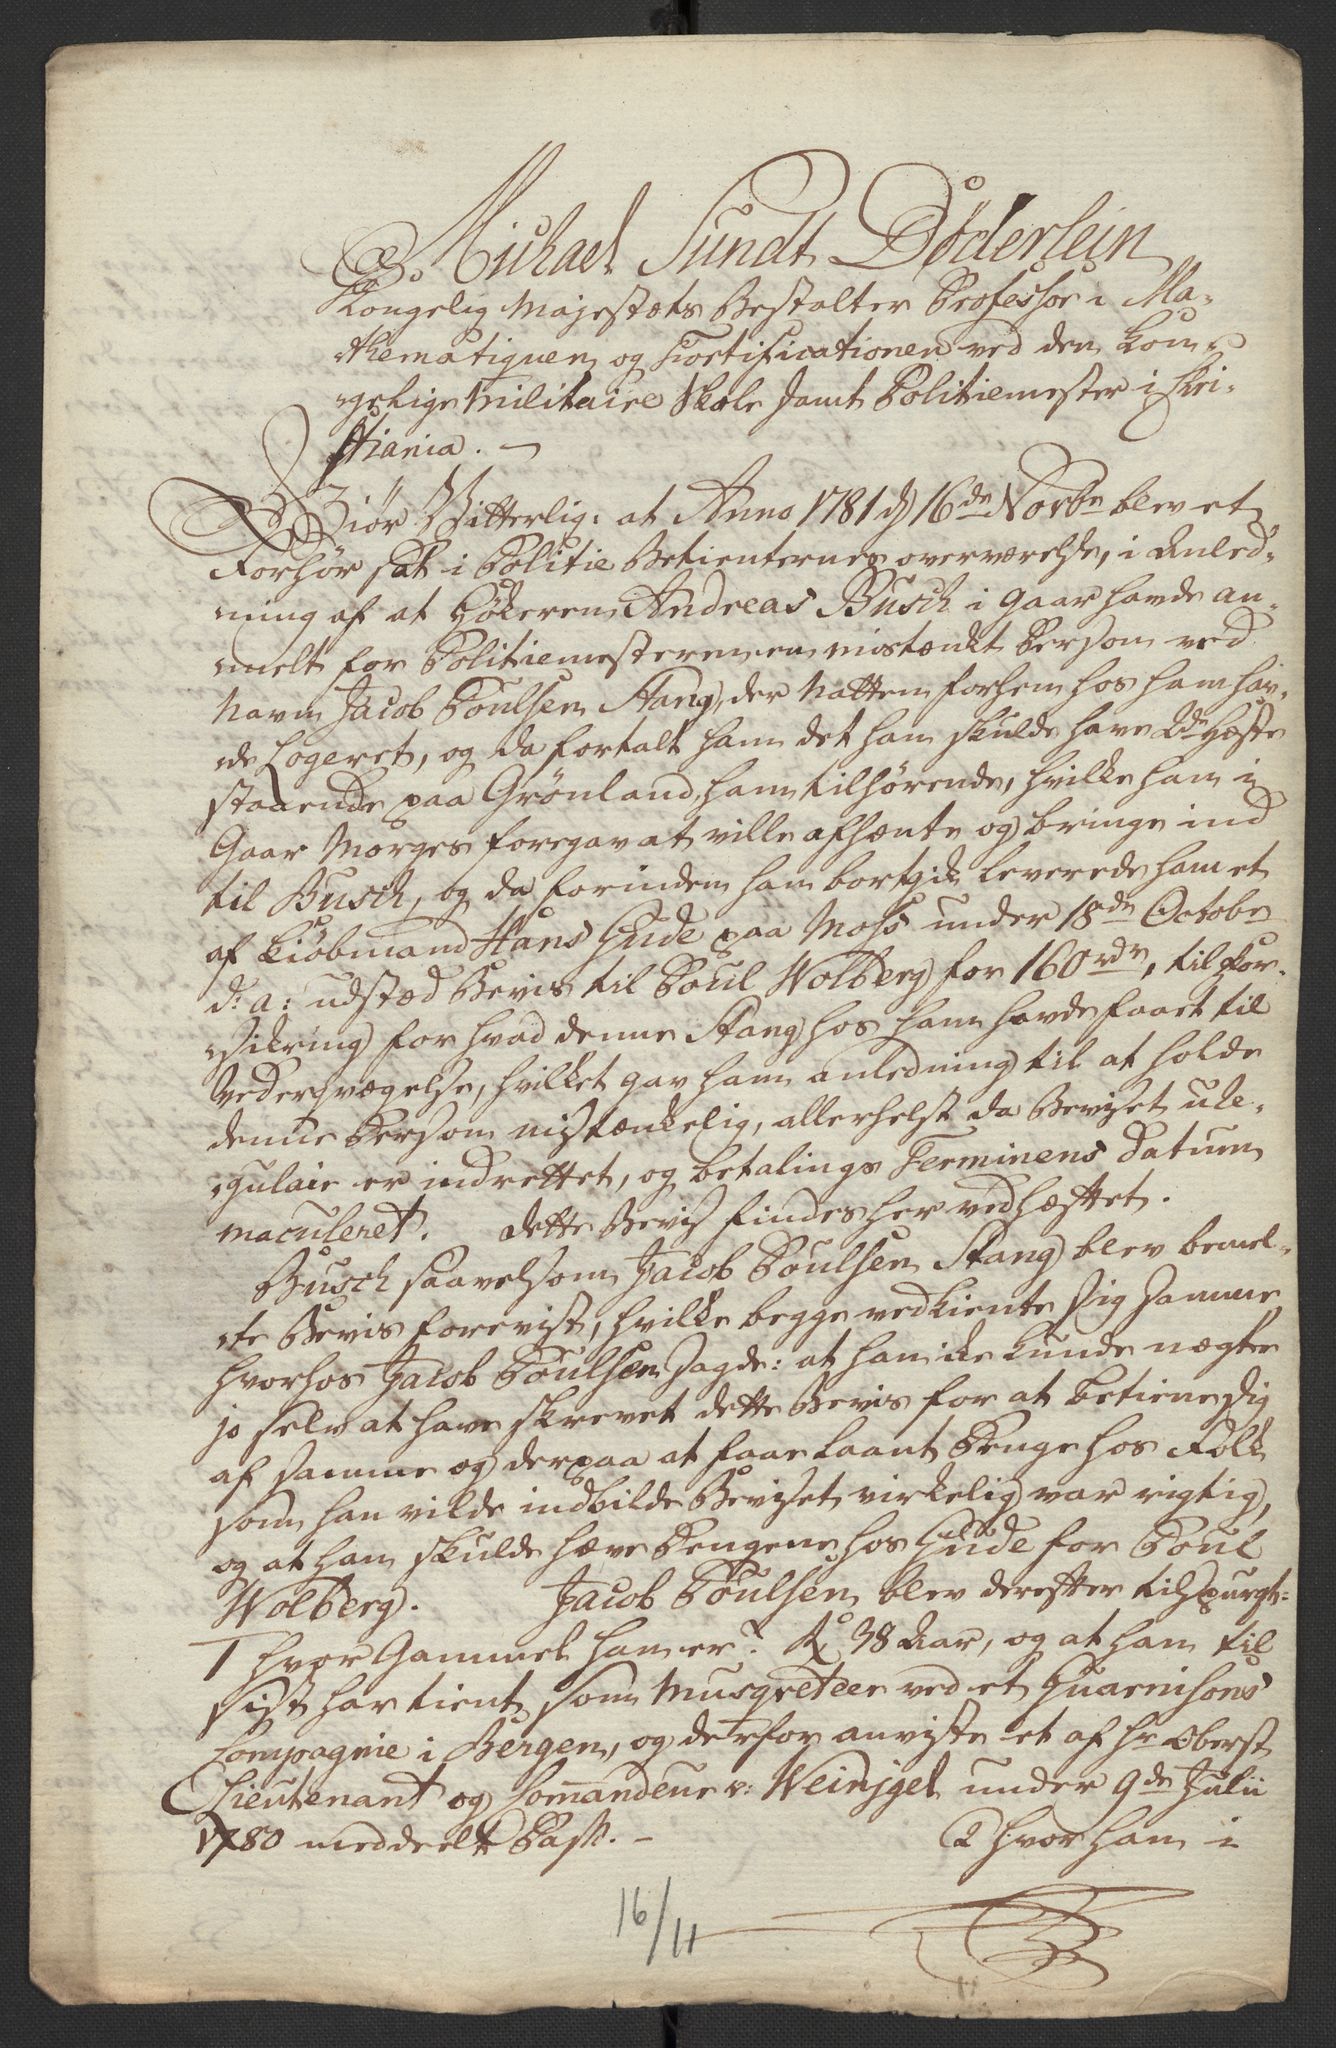 Michael Sundt Döderlein
Kongelig Majestæts Bestalter Professor i Ma-
thematiquen og Fortificationen ved den kon-
gelige Militaire Skole samt Politiemester i Chri-
stiania. —
Giör Vitterlig: at Anno 1781 d 16de Novbr blev et
Forhör sat i Politie Betienternes overværelse, i Anled-
ning af at Hökeren Andreas Busch i Gaar havde an-
melt for Politiemesteren en mistænkt Person ved
Navn Jacob Poulsen Stang, der Natten forhen hos ham hav-
de Logeret, og da fortalt ham det han skulde have 2de Heste
staaende paa Grönland, ham tilhörende, hvilke han i
Gaar Morges foregav at ville afhænte og bringe ind
til Busch, og da forinden han bortgik leverede ham et
af Kiöbmand Hans Gude paa Moss under 18de Octobr
d: a: udstæd Bevis til Poul Wolberg for 160 rdr, til For-
sikring for hvad denne Stang hos ham havde faaet til
Vederqvægelse, hvilket gav ham anledning til at holde
denne Person mistænkelig, allerhelst da Beviset ure-
gulair er indrettet, og betalings Terminens Datum
maculeret. Dette Bevis findes her vedhæftet.
Busch saavelsom Jacob Poulsen Stang blev bemel-
te Bevis forevist, hvilke begge vedkiente sig samme,
hvorhos Jacob Poulsen sagde: at han ikke kunde nægte
jo selv at have skrevet dette Bevis for at betiene sig
af samme og derpaa at faae laant Penge hos Folk
som han vilde indbilde Beviset virkelig var rigtig,
og at han skulde hæve Pengene hos Gude for Poul
Wolberg. Jacob Poulsen blev derefter tilspurgt:
1 hvor Gammel han er? R 38 Aar, og at han til
sist har tient som Musqveteer ved et Guarnisons
Compagnie i Bergen, og derfor anviste et af Hr Oberst
Lieutenant og Commandeur v: Weinigel under 9de Julii
1780 meddeelt Pass. — 2 hvor han i
16/11